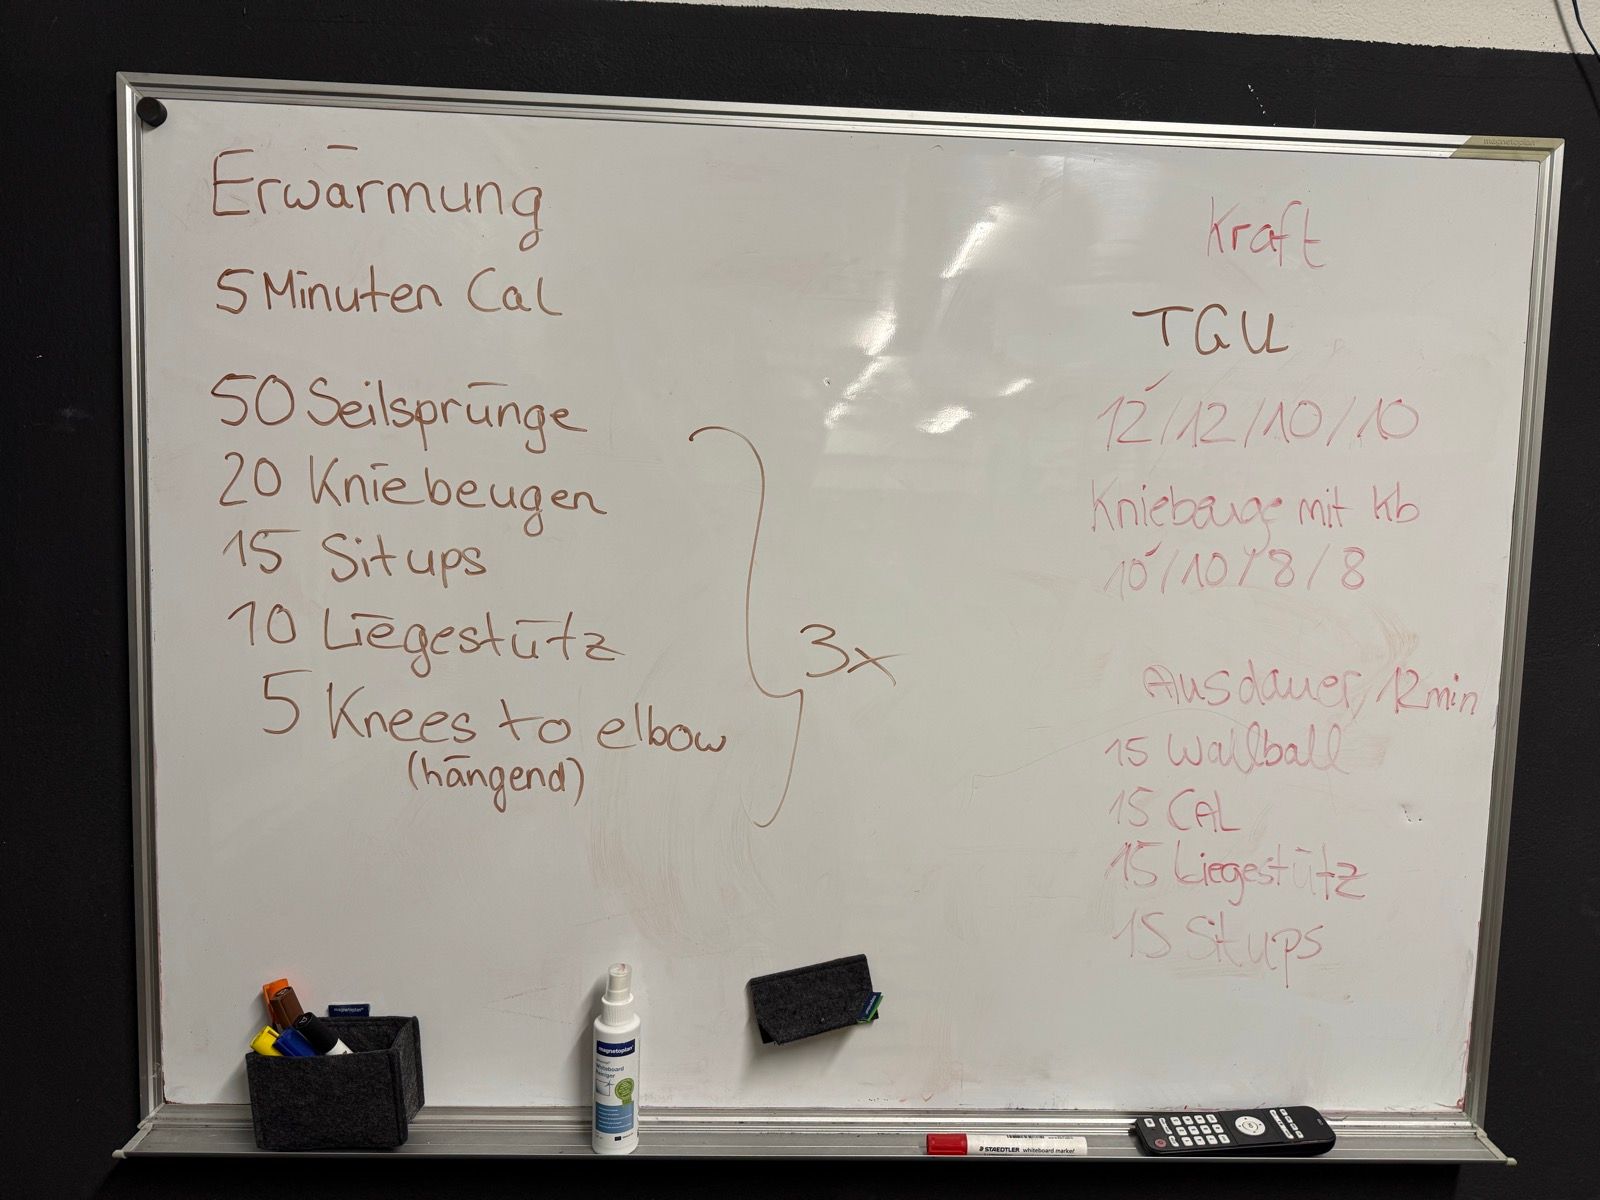 Erwārmung
5 Minuten Cal
50 Seilsprūnge
20 Kniebeugen
15 Situps
10 Liegestūtz
5 Knees to elbow
(hāngend)
3x
Kraft
TGU
12/12/10/10
Kniebeuge mit Kb
10/10/8/8
Ausdauer 12min
15 Wallball
15 CAL
15 Liegestūtz
15 Situps
magnetoplan
magnetoplan
magnetoplan
Whiteboard
Reiniger
STAEDTLER whiteboard marker